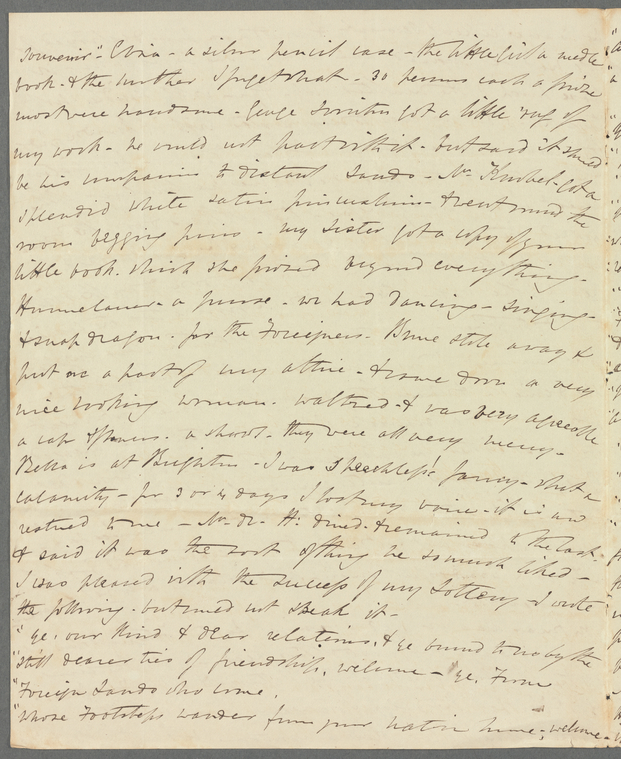 Souvenir" - Etna - a silver pencil case - the little girl a needle
book - & the mother I forget what - 30 persons each a prize
most were handsome - George got a little rug of
my work - he would not part with it - but said it should
be his companion to distant lands - Mr. got a
splendid white satin pincushion - & went round the
room begging pins - my sister got a copy of your
little book which she prized beyond everything -
a purse - we had Dancing - singing -
& snap dragon - for the Foreigners - stole away &
put on a part of my attire - & came down a very
nice looking woman - waltzed - & was very agreeable
a cap a shawl - they were all very merry -
Bella is at Brighton - I was Speechless fancy - what a
calamity - for 3 or 4 days I lost my voice - it is now
restored to me - Mr. H: dined & remained to the last -
& said it was the sort of thing he so much liked -
I was pleased with the success of my Lottery - I wrote
the following - but could not speak it -
"Ye, our kind & dear relations, & ye bound to us by the
"still dearer ties of friendship, welcome - Ye, From
"Foreign Lands who come,
"Whose Footsteps wander from your native home; welcome -